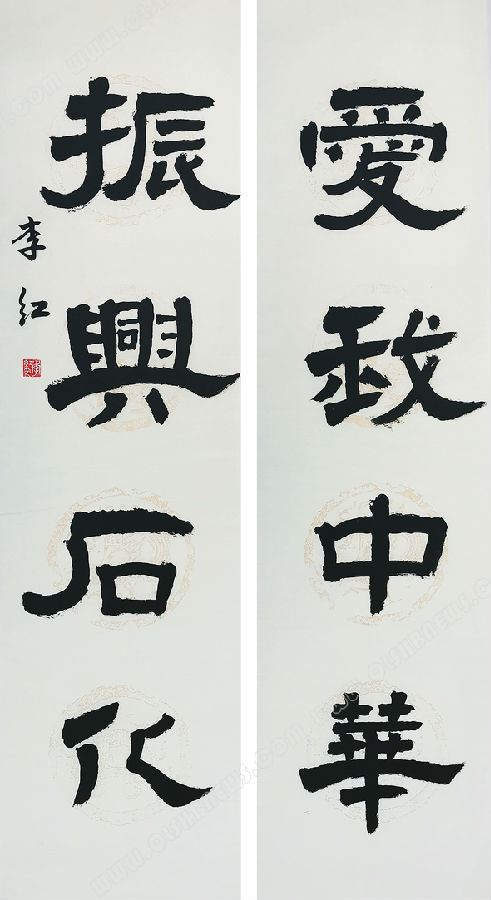 愛我中華
振興石化
李紅